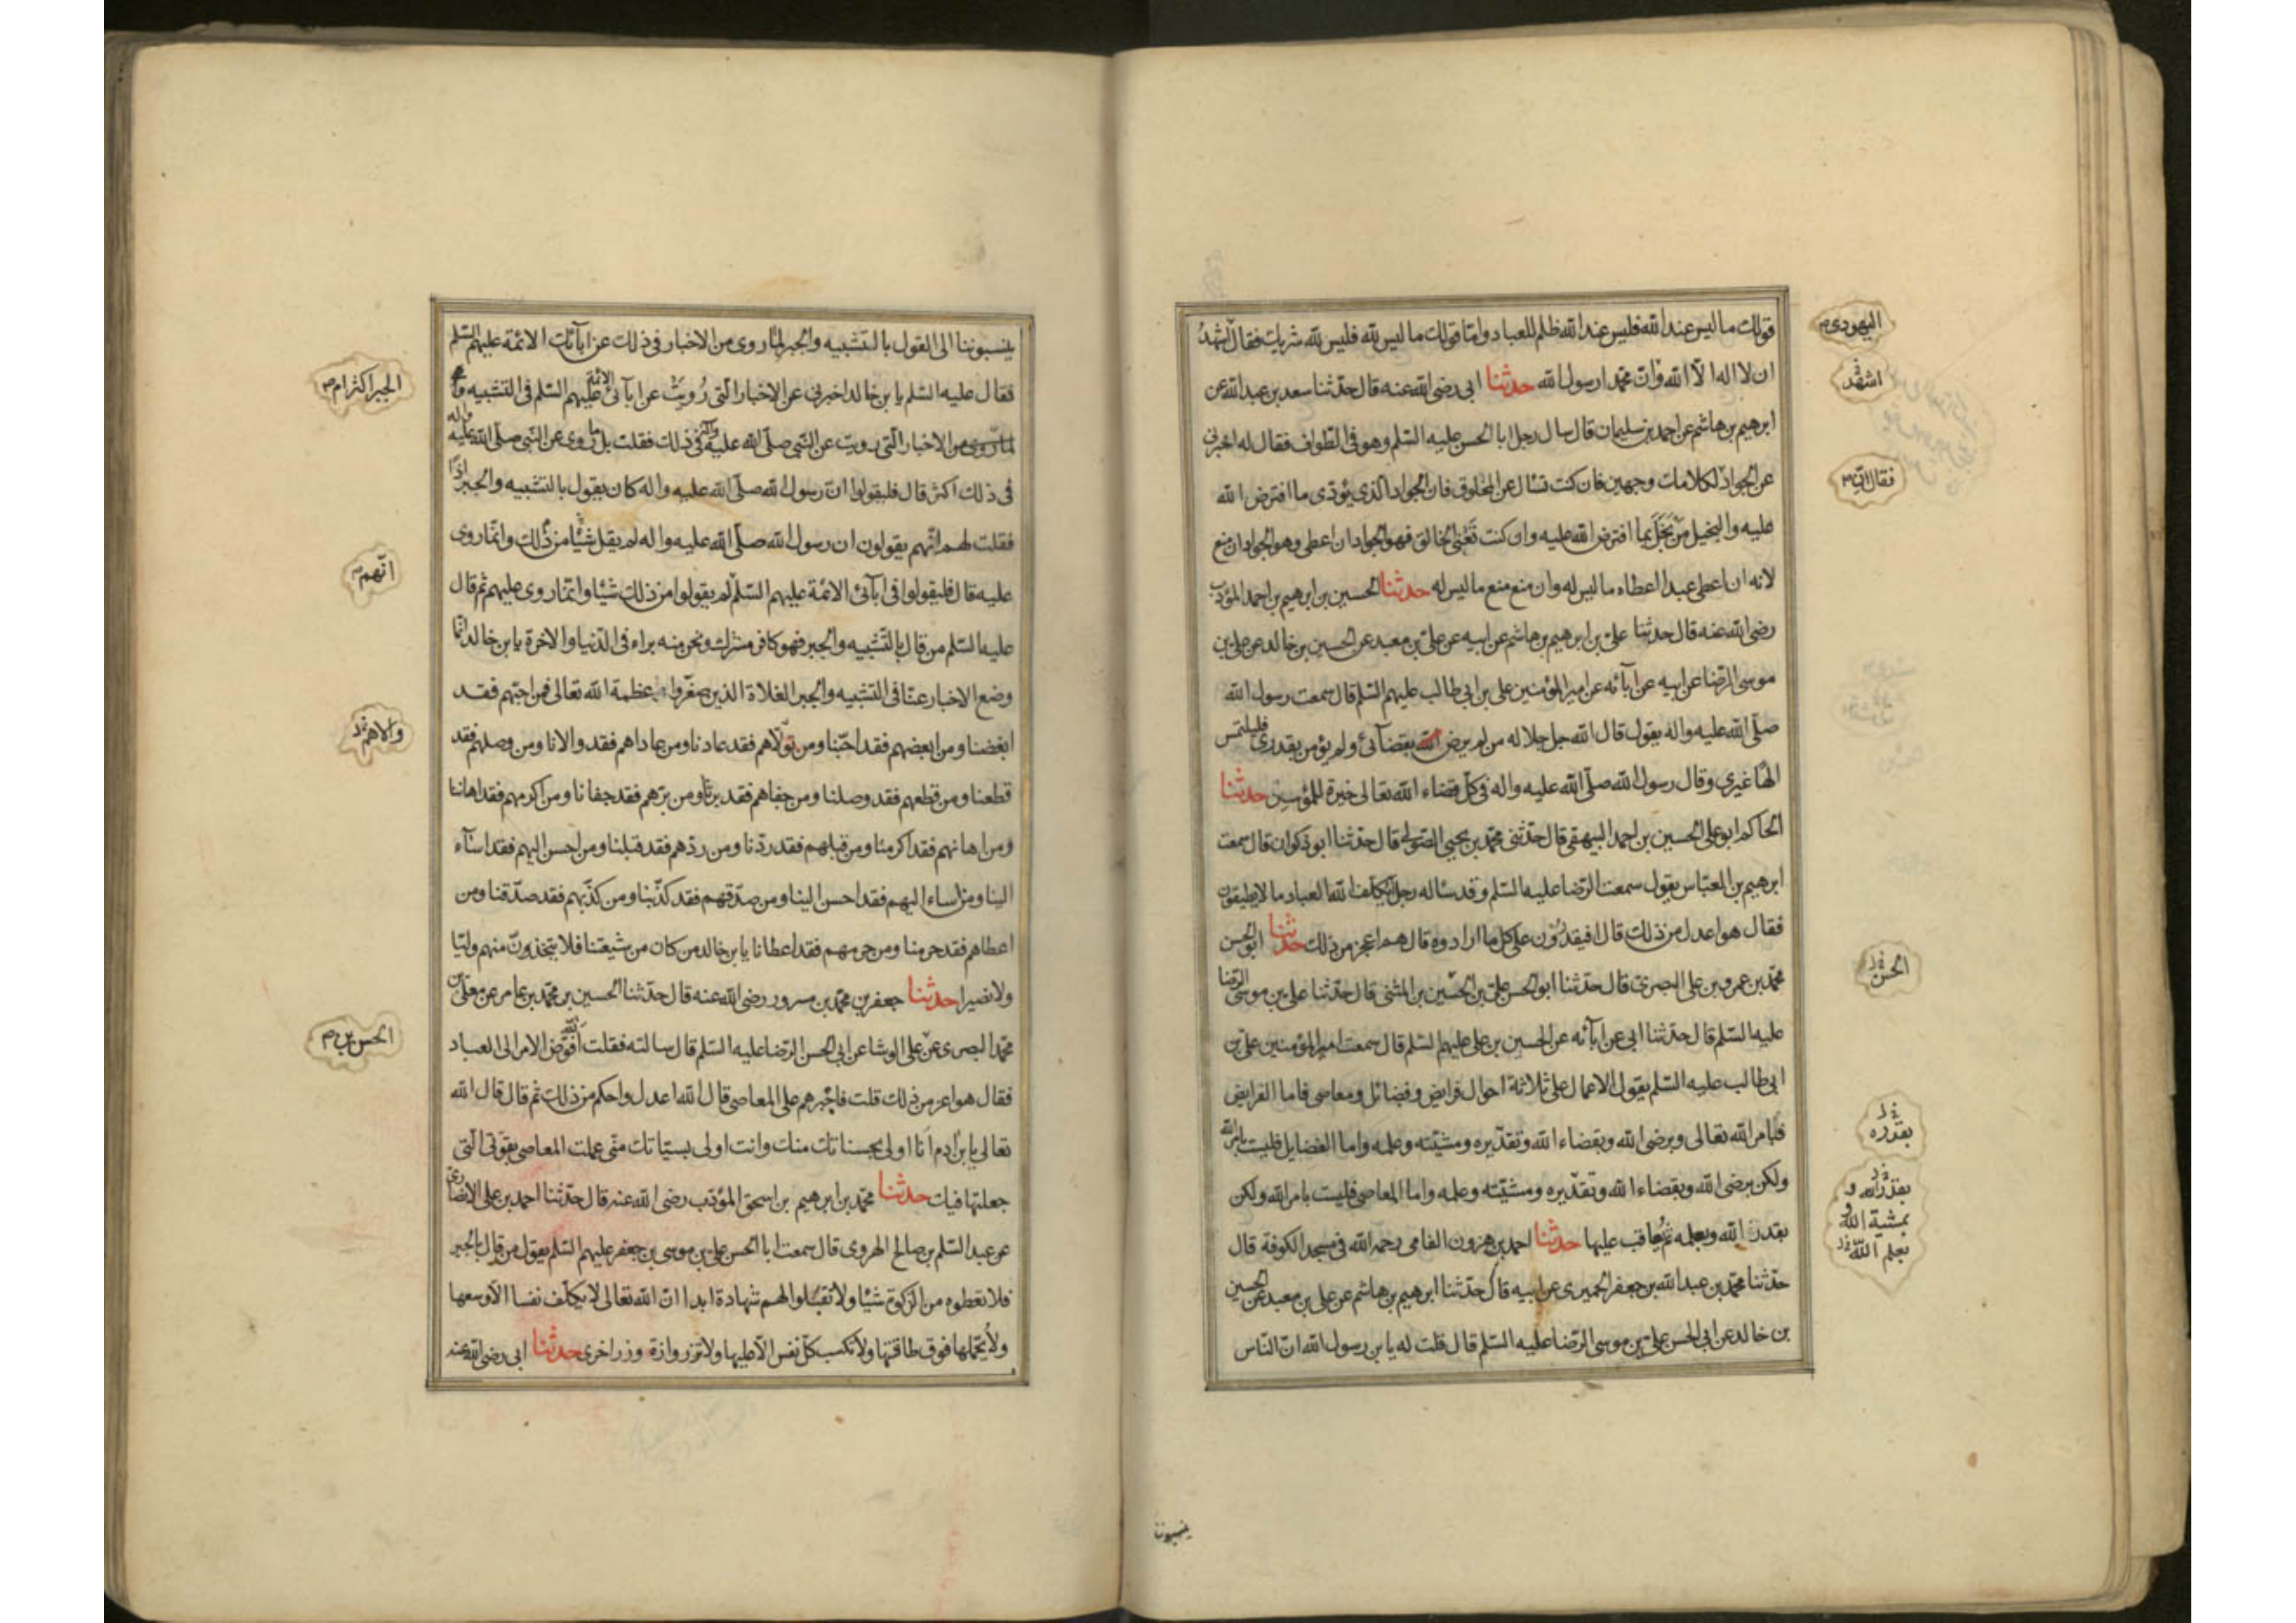 قولك ما ليس عند الله فليس عند الله ظلم للعباد واما قولك ما ليس لله فليس لله شريك فقال اشهدُ
ان لا اله الا الله وانّ محمّدا رسول الله حدثنا ابى رضى الله عنه قال حدّثنا سعد بن عبد الله عن
ابرهيم بن هاشم عن احمد بن سليمان قال سال رجل ابا الحسن عليه السّلم وهو فى الطواف فقال له اخبرنى
عن الجواد لكلامك وجهين فان كنت تسال عن المخلوق فان الجواد الذى يؤدى ما افترض الله
عليه والبخيل من بَخَل بما افترض الله عليه وان كنت تَعْنى الخالق فهو الجواد ان اعطى وهو الجواد ان منع
لانه ان اعطى عبدا اعطاه ما ليس له وان منع منع ما ليس له حدثنا الحسين بن ابرهيم بن احمد المؤدب
رضى الله عنه قال حدثنا على بن ابرهيم بن هاشم عن ابيه عن علىّ بن معبد عن الحسين بن خالد عن على بن
موسى الرضا عن ابيه عن آبائه عن امير المؤمنين على بن ابى طالب عليهم السّلم قال سمعت رسول الله
صلّى الله عليه واله يقول قال الله جل جلاله من لم يرض بقضآئى ولم يؤمن بقدرى فليلتمس
الها غيرى وقال رسول الله صلّى الله عليه واله فى كلّ قضاء الله تعالى خيرة للمؤمنين حدثنا
الحاكم ابو على الحسين بن احمد البيهقى قال حدّثنى محمّد بن يحيى الصّولى قال حدّثنا ابو ذكوان قال سمعت
ابرهيم بن العبّاس يقول سمعت الرّضا عليه السّلم وقد ساله رجل ايكلّف الله العباد ما لا يطيقون
فقال هو اعدل من ذلك قال افيقدرُون على كل ما ارادوه قال هم اعجز من ذلك حدثنا ابو الحسن
محمّد بن عمرو بن على البصرىّ قال حدّثنا ابو الحسن علىّ بن الحسين بن المثنى قال حدّثنا على بن موسى الرّضا
عليه السّلم قال حدّثنا ابى عن ابآئه عن الحسين بن على عليهم السّلم قال سمعت امير المؤمنين على بن
ابى طالب عليه السّلم يقول الاعمال على ثلاثة احوال فرايض وفضائل ومعاصى فاما الفرايض
فبامر الله تعالى وبرضى الله وبقضاء الله وتقدّيره ومشيّته وعلمه واما الفضايل فليست بامر الله
ولكن برضى الله وبقضاء الله وتقدّيره ومشيّته وعلمه واما المعاصى فليست بامر الله ولكن
بقدر الله وبعلمه ثم يُعاقب عليها حدثنا احمد بن هرون الفامى رحمه الله فى مسجد الكوفة قال
حدّثنا محمّد بن عبد الله بن جعفر الحميرى عن ابيه قال حدّثنا ابرهيم بن هاشم عن على بن معبد عن الحسين
بن خالد عن ابى الحسن علىّ بن موسى الرّضا عليه السّلم قال قلت له يا بن رسول الله انّ النّاس
اليهودى
اشهد
فقال انّ
الحسن
بقدره
بقدر الله و
بمشية الله و
بعلم الله
ينسبوننا
ينسبوننا الى القول بالتّشبيه والجبر لما روى من الاخبار فى ذلك عن ابآئك الائمة عليهم السّلم
فقال عليه السّلم يا بن خالد اخبرنى عن الاخبار الّتى رُويت عن ابآئى الائمّة عليهم السّلم فى التشبيه
من الاخبار الّتى رويت عن النّبى صلّى الله عليه وآله فى ذلك فقلت بل ما روى عن النّبى صلّى الله عليه واله
فى ذلك اكثر قال فليقولوا انّ رسول الله صلّى الله عليه واله كان يقول بالتشبيه والجبر اذًا
فقلت لهم انّهم يقولون ان رسول الله صلّى الله عليه واله لم يقل شيئا من ذلك وانّما روى
عليه قال فليقولوا فى ابآئى الائمّة عليهم السّلم لم يقولوا من ذلك شيئا وانّما روى عليهم ثم قال
عليه السّلم من قال بالتّشبيه والجبر فهو كافر مشرك ونحن منه براء فى الدّنيا والاخرة يا بن خالد انّما
وضع الاخبار عنّا فى التشبيه والجبر الغلاة الذين صغّروا عظمة الله تعالى فمن احبّهم فقد
ابغضنا ومن ابغضهم فقد احبّنا ومن تولّاهم فقد عادنا ومن عاداهم فقد والانا ومن وصلهم فقد
قطعنا ومن قطعهم فقد وصلنا ومن جفاهم فقد برّنا ومن برّهم فقد جفانا ومن اكرمهم فقد اهاننا
ومن اهانهم فقد اكرمنا ومن قبلهم فقد ردّنا ومن ردّهم فقد قبلنا ومن احسن اليهم فقد اسآء
الينا ومن اساء اليهم فقد احسن الينا ومن صدّقهم فقد كذّبنا ومن كذّبهم فقد صدّقنا ومن
اعطاهم فقد حرمنا ومن حرمهم فقد اعطانا يا بن خالد من كان من شيعتنا فلا يتخذونّ منهم وليّا
ولا نصيرا حدثنا جعفر بن محمّد بن مسرور رضى الله عنه قال حدّثنا الحسين بن محمّد بن عامر عن معلى بن
محمّد البصرى عن على الوشا عن ابى الحسن الرّضا عليه السّلم قال سالته فقلت الله فوّض الامر الى العباد
فقال هو اعز من ذلك قلت فاجْبرهم على المعاصى قال الله اعدل واحكم من ذلك ثم قال قال الله
تعالى يا بن ادم انا اولى بحسناتك منك وانت اولى بسيّاتك منّى عملت المعاصى بقوّتى الّتى
جعلتها فيك حدثنا محمّد بن ابرهيم بن اسحق المؤدّب رضى الله عنه قال حدّثنا احمد بن على الانصارىّ
عن عبد السّلم بن صالح الهروى قال سمعت ابا الحسن على بن موسى بن جعفر عليهم السّلم يقول من قال بالجبر
فلا تعطوه من الزكوة شيئا ولا تقبلوا لهم شهادة ابدا انّ الله تعالى لا يكلّف نفسا الّا وسعها
ولا يُحمّلها فوق طاقتها ولا تكسب كلّ نفس الّا عليها ولا تزر وازرة وزر اخرى حدثنا ابى رضى الله عنه
الجبر اكثر ام
انّهم
والاهم
الحسن بن